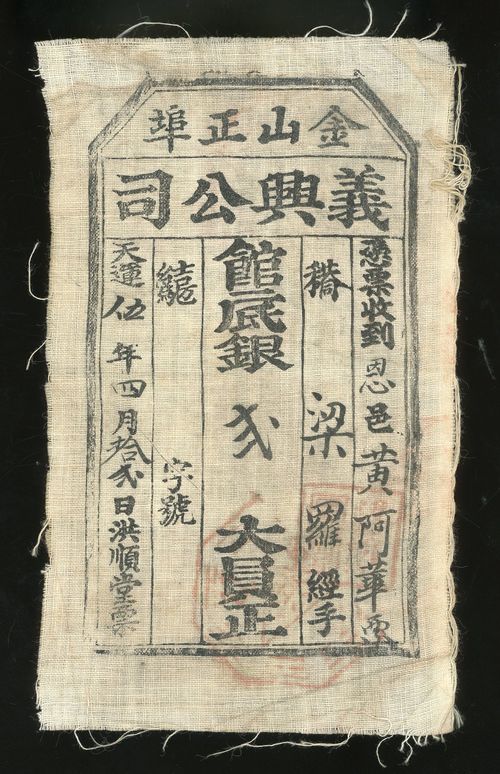 金山正埠
義興公司
票收到恩邑黃阿華
梁羅經手
館底銀弍大員正
字號
天運伍年四月拾弍日洪順堂票